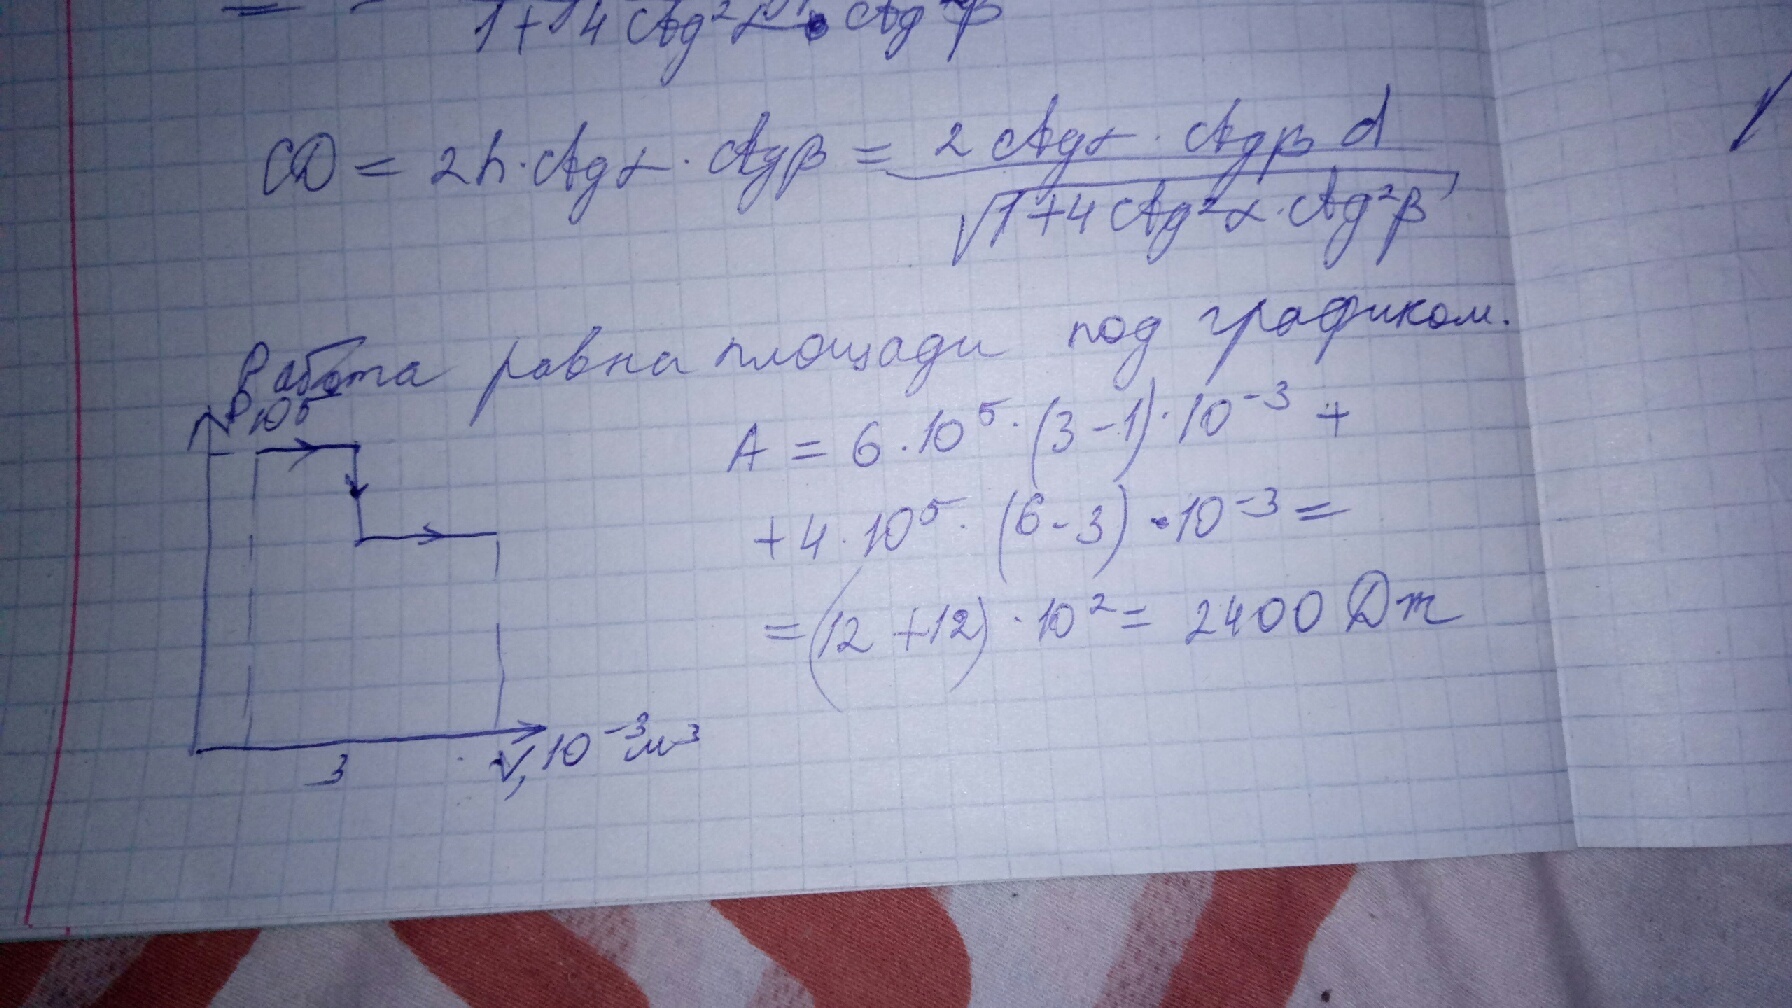 =
1+4 ctg²α · ctg²β
CD = 2h·ctgα·ctgβ = 2 ctgα · ctgβ d / √1+4 ctg²α·ctg²β
Работа равна площади под графиком.
P,10⁵
A = 6·10⁵·(3-1)·10⁻³ +
+4·10⁵·(6-3)·10⁻³ =
=(12+12)·10² = 2400 Дж
3
V, 10⁻³м³